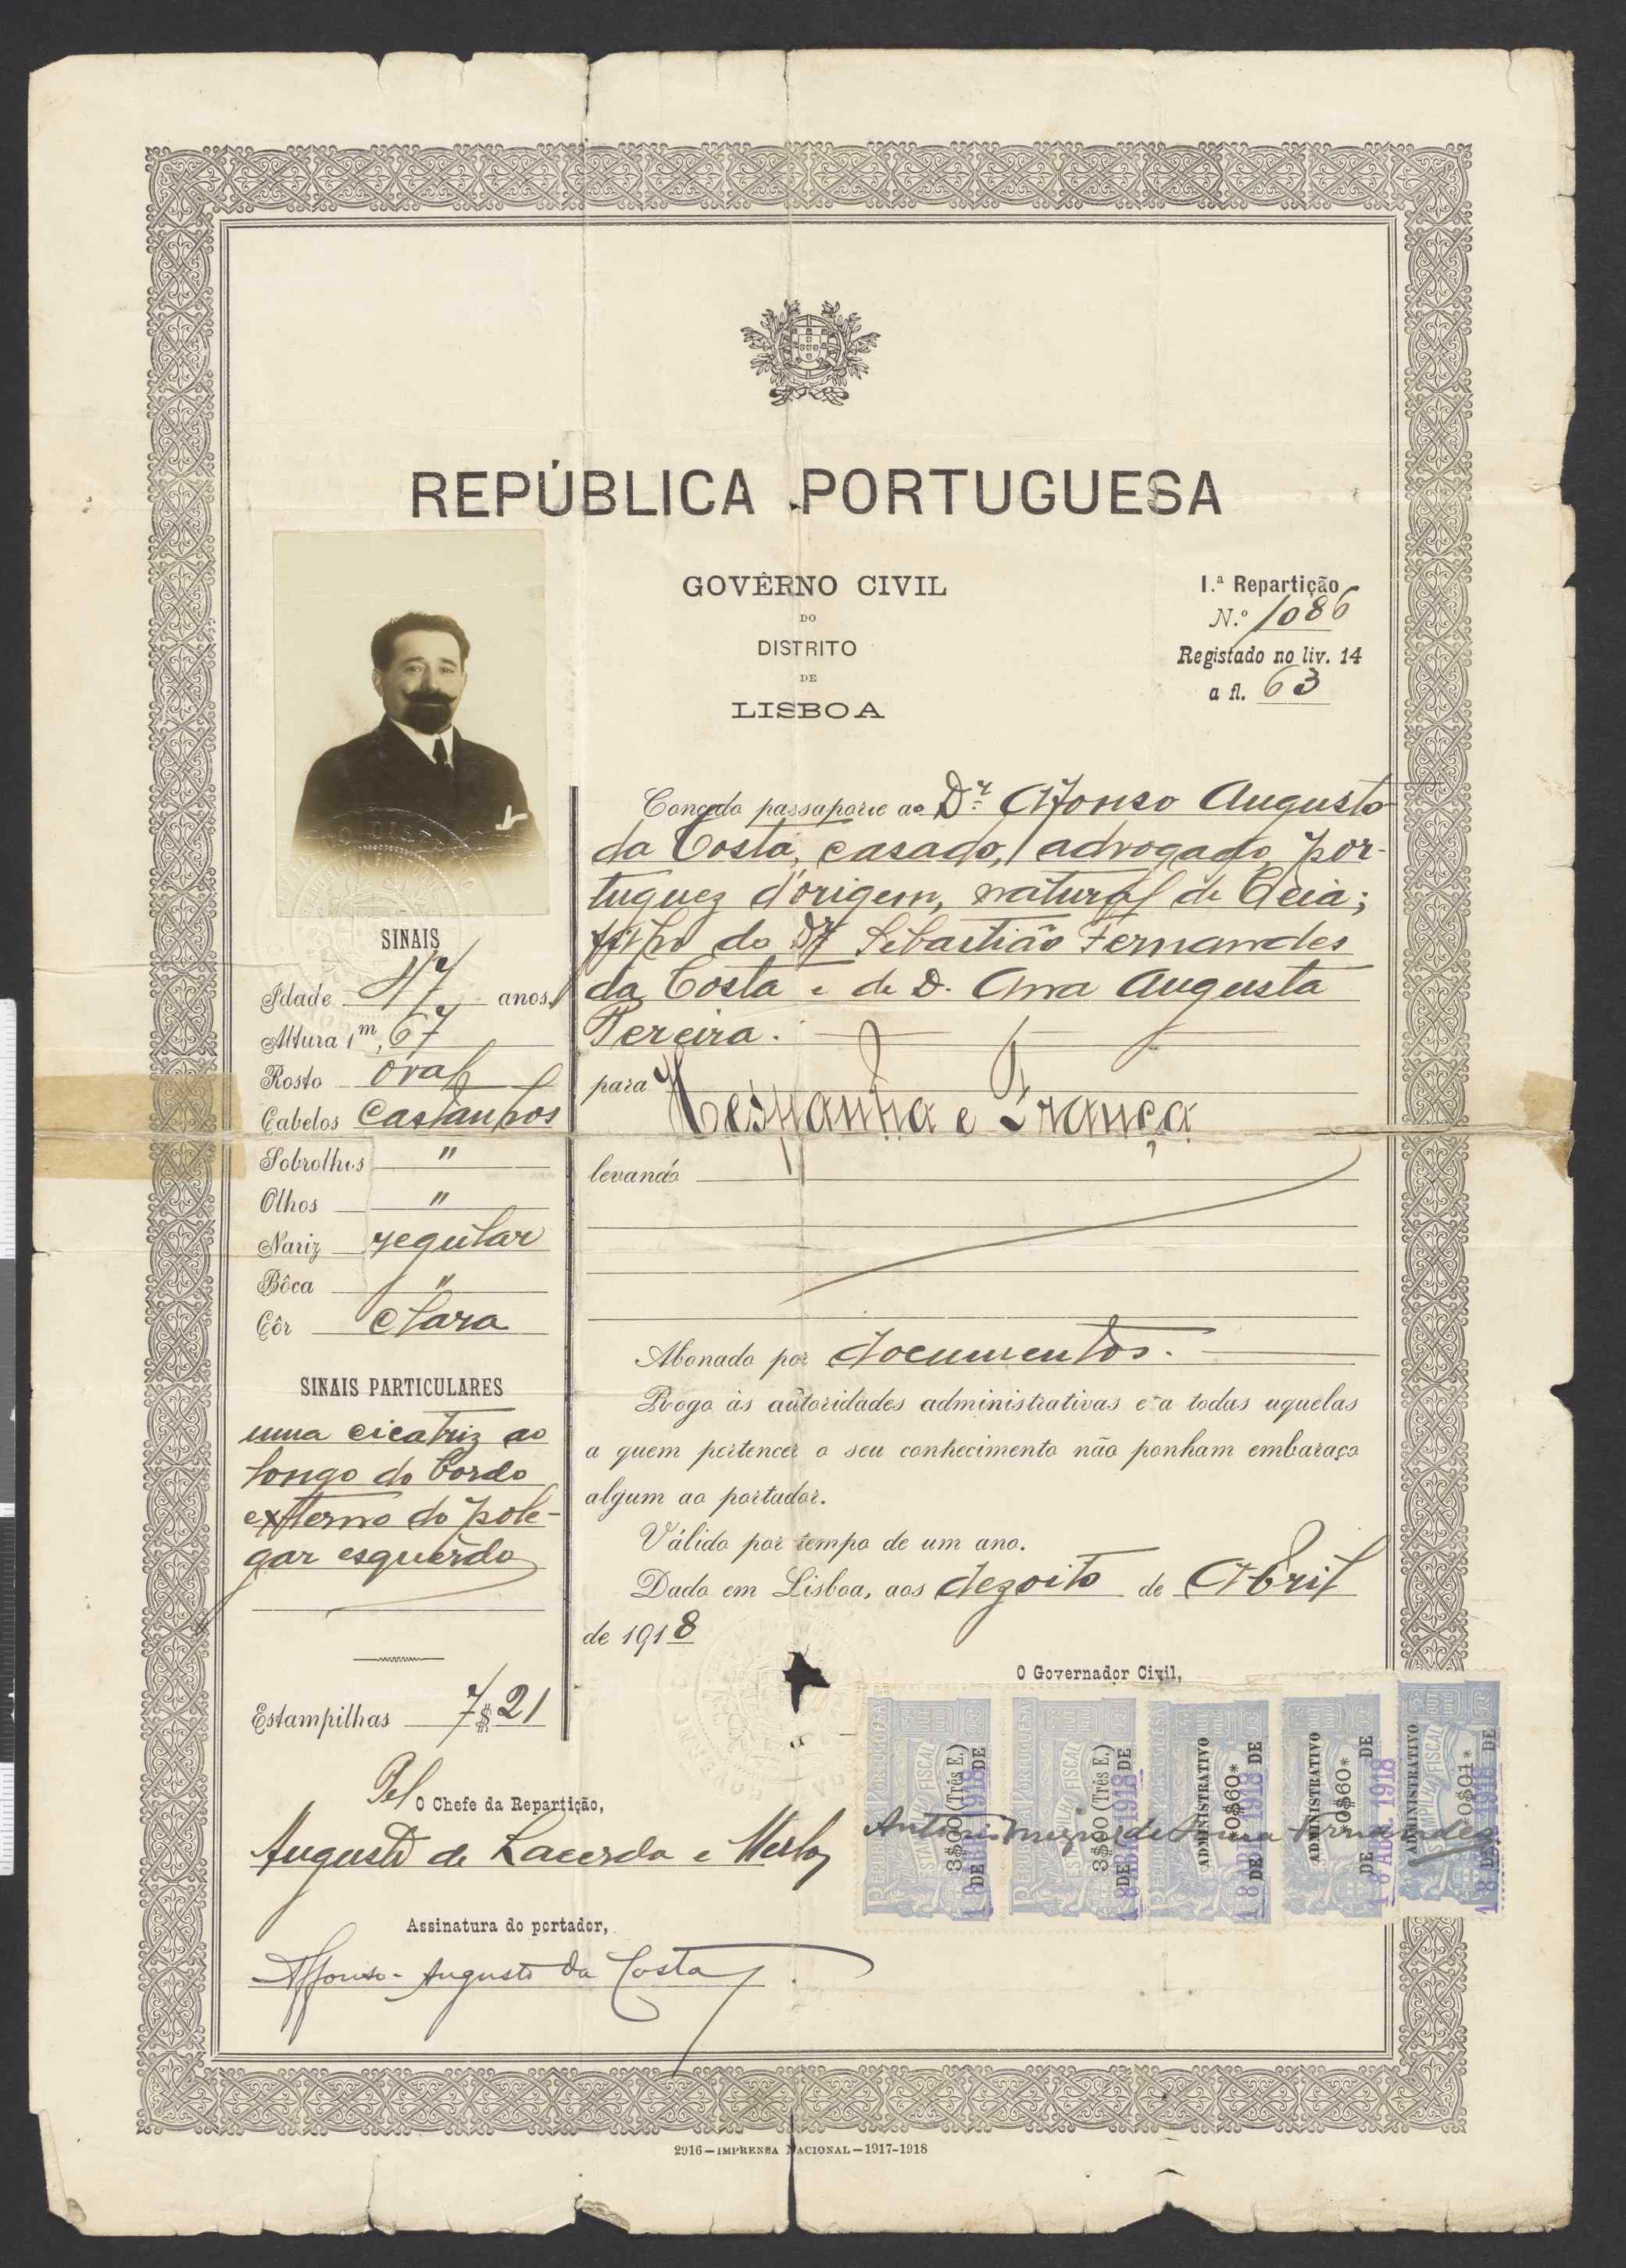 REPÚBLICA PORTUGUESA
GOVÊRNO CIVIL
DO
DISTRITO
DE
LISBOA
1.ª Repartição
N.º 1086
Registado no liv. 14
a fl. 63
Concedo passaporte ao Dr. Afonso Augusto
da Costa, casado, advogado, por-
tuguez d'origem, natural de Ceia;
filho do Dr. Sebastião Fernandes
da Costa e de D. Anna Augusta
Pereira.
para Hespanha e França
levando
Abonado por documentos.
Rogo ás autoridades administrativas e a todas aquelas
a quem pertencer o seu conhecimento não ponham embaraço
algum ao portador.
Válido por tempo de um ano.
Dado em Lisboa, aos dezoito de Abril
de 1918
O Governador Civil,
SINAIS
Idade 47 anos.
Altura 1m,67
Rosto oval
Cabelos Castanhos
Sobrolhos "
Olhos "
Nariz regular
Bôca "
Côr clara
SINAIS PARTICULARES
uma cicatriz ao
longo do bordo
externo do pole-
gar esquerdo
Estampilhas 7$21
Pel O Chefe da Repartição,
Augusto de Lacerda e Mello
Assinatura do portador,
Affonso Augusto da Costa
REPUBLICA PORTUGUESA
ESTAMPILHA FISCAL
3$00 (Três E.)
DE DE
18 ABR. 1918
REPUBLICA PORTUGUESA
ESTAMPILHA FISCAL
3$00 (Três E.)
DE DE
18 ABR. 1918
ADMINISTRATIVO
*0$60*
DE DE
18 ABR. 1918
ADMINISTRATIVO
*0$60*
DE DE
18 ABR. 1918
ADMINISTRATIVO
ESTAMPILHA FISCAL
*0$01*
DE DE
18 1918
2916—IMPRENSA NACIONAL—1917-1918